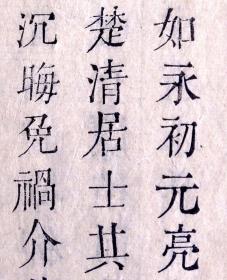 如永初元亮
楚清居士共
沉晦免禍介